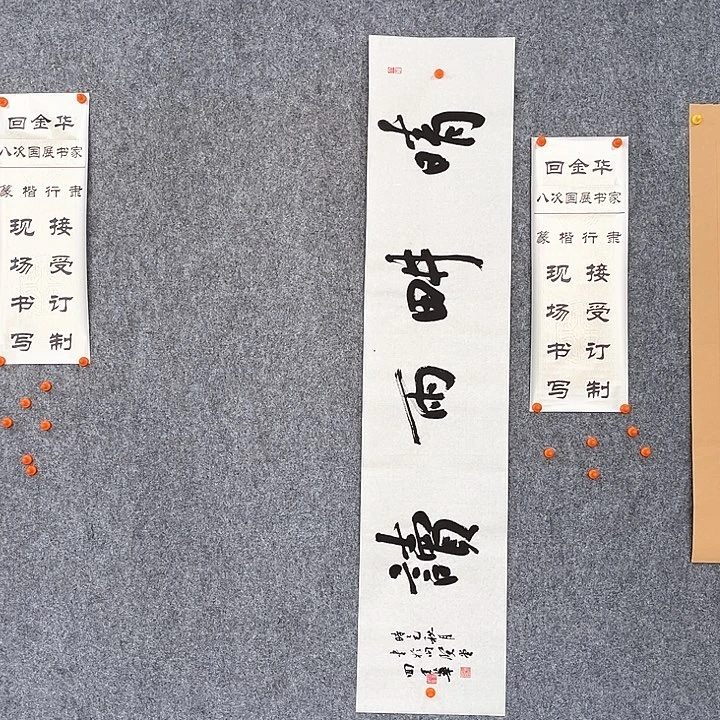 回金华
八次国展书家
篆楷行隶
现场书写
接受订制
晴耕雨讀
回金华
八次国展书家
篆楷行隶
现场书写
接受订制